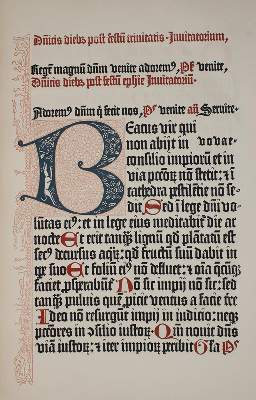 Dn̄icis diebꝫ post festū trinitatis. Inuitatorium,
Regē magnū dn̄m venite adorem⁹, Ps̄ venite,
Dn̄icis diebꝫ post festū ephīe Inuitatoriū.
Adorem⁹ dn̄m q̄ fecit nos, Ps̄ venite an̄ Seruite.
Beatus vir qui
non abijt in vovae
consilio impiorū et in
via pctoꝝ nō stetit: ⁊ ī
cathedra pestilētie nō se-
dit Sed ī lege dn̄i vo-
lūtas ei⁹: et in lege eius meditabit᷑ die ac
nocte Et erit tanqꝫ lignū qd̄ plātatū est
sec⁹ decursus aqꝝ: qd̄ fructū suū dabit in
tꝑe suo Et foliū ei⁹ nō defluet: ⁊ oīa q̄cūqꝫ
faciet ꝓsperabūt᷑ Nō sic impij nō sic: sed
tanqꝫ puluis quē ꝓicit ventus a facie t̄re
Ideo nō resurgūt impij in iudicio: neqꝫ
pctores in ꝯsilio iustoꝝ Qm̄ nouit dn̄s
viā iustoꝝ: ⁊ iter impioꝝ peribit Gl̄a Ps̄